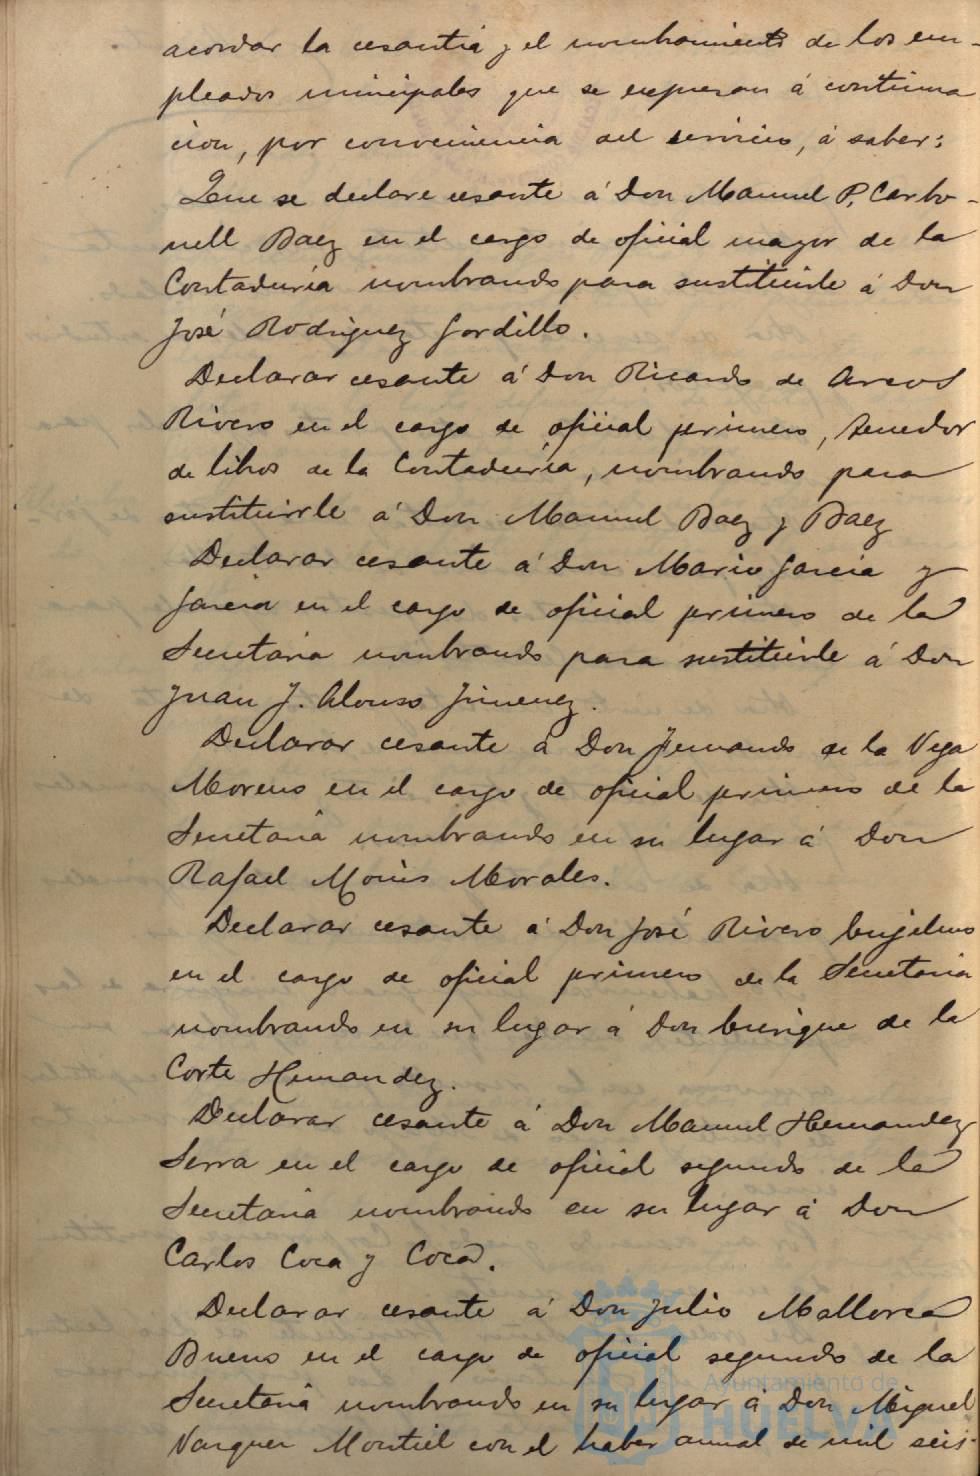 acordar la cesantia y el nombramiento de los em-
pleados municipales que se expresan á continua
cion, por conveniencia del servicio, á saber:
Que se declare cesante á Don Manuel P. Carbo-
nell Baez en el cargo de oficial mayor de la
Contaduría nombrando para sustituirle á Don
José Rodriguez Gordillo.
Declarar cesante á Don Ricardo de Arcos
Rivero en el cargo de oficial primero, tenedor
de libros de la Contaduría, nombrando para
sustituirle á Don Manuel Baez y Baez
Declarar cesante á Don Mario Garcia y
Garcia en el cargo de oficial primero de la
Secretaria nombrando para sustituirle á Don
Juan J. Alonso Jimenez.
Declarar cesante á Don Fernando de la Vega
Moreno en el cargo de oficial primero de la
Secretaria nombrando en su lugar á Don
Rafael Monis Morales.
Declarar cesante á Don José Rivero
en el cargo de oficial primero de la Secretaria
nombrando en su lugar á Don Enrique de la
Corte Hernandez.
Declarar cesante á Don Manuel Hernandez
Serra en el cargo de oficial segundo de la
Secretaria nombrando en su lugar á Don
Carlos Coca y Coca.
Declarar cesante á Don Julio Mallorca
Bueno en el cargo de oficial segundo de la
Secretaria nombrando en su lugar á Don Miguel
Vazquez Montiel con el haber anual de mil seis-
Ayuntamiento de
HUELVA